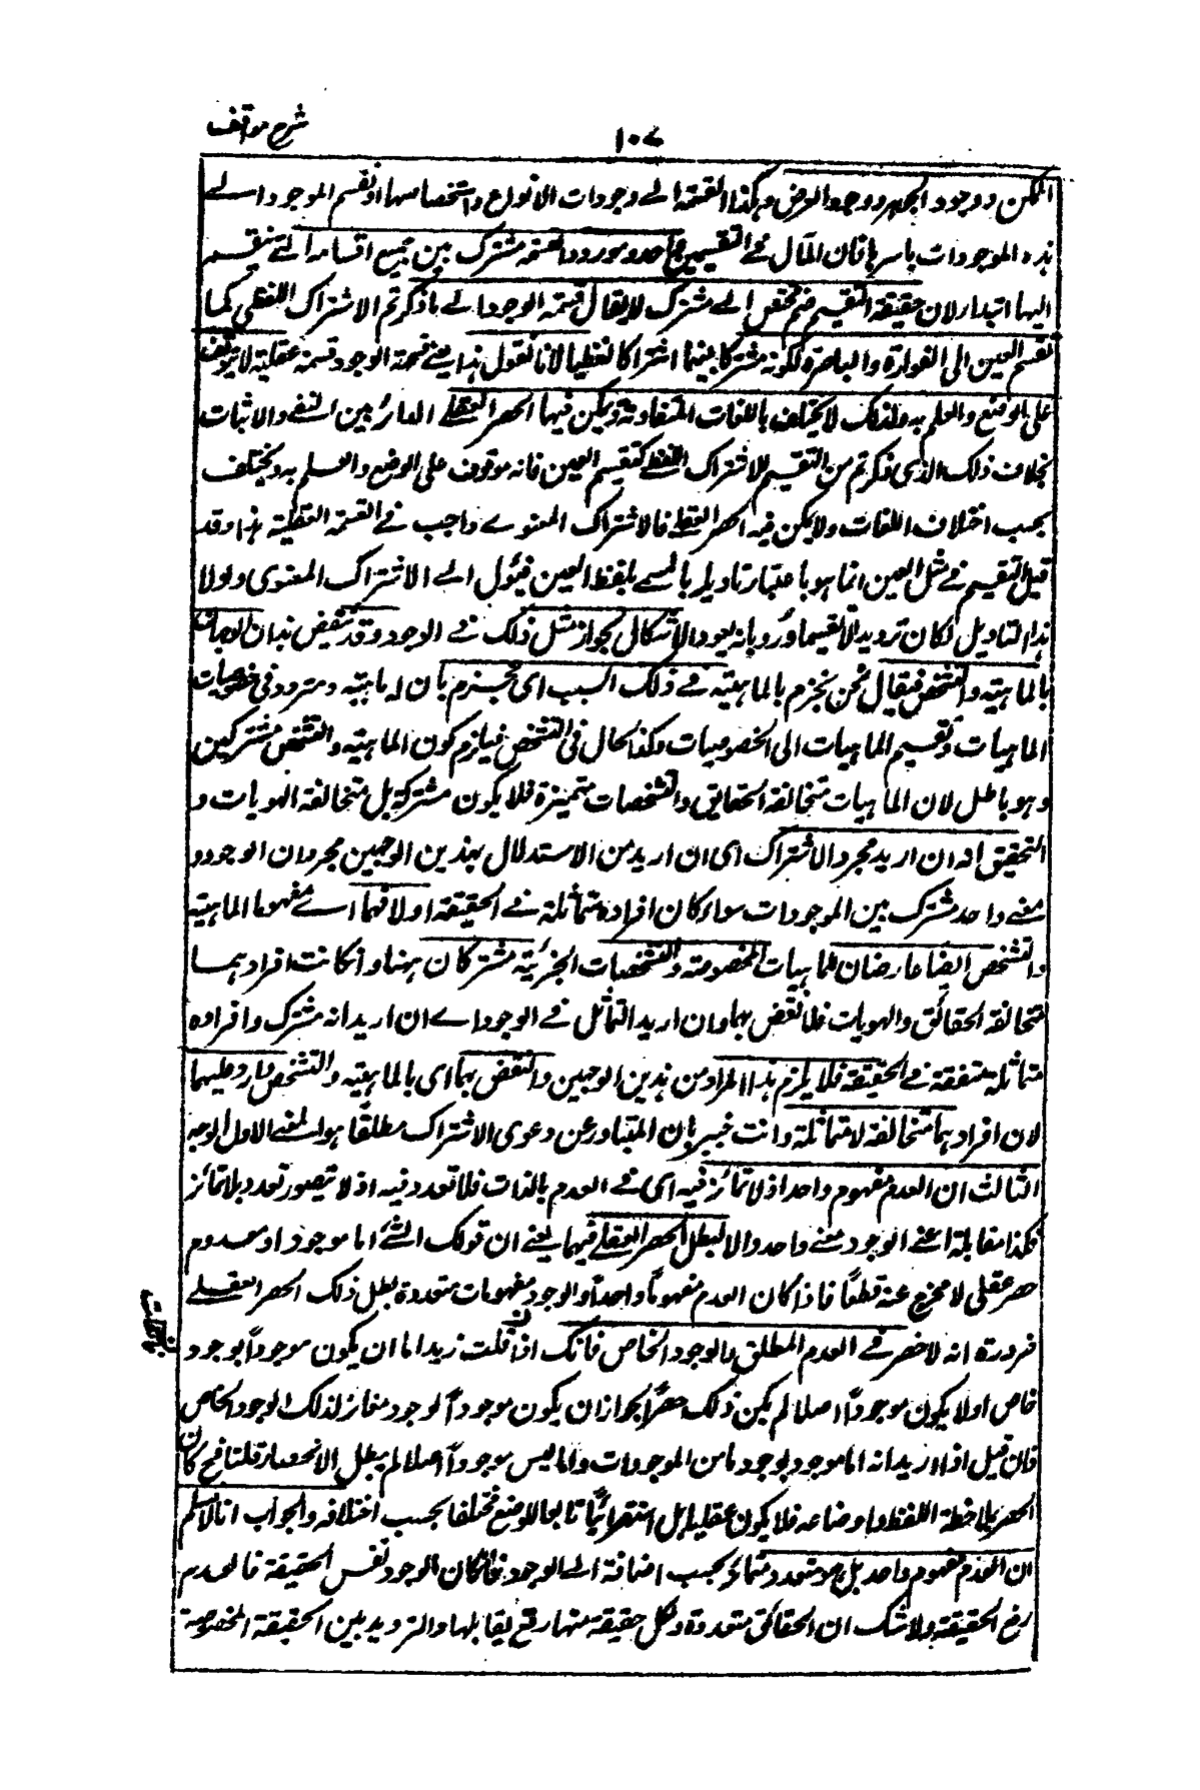 شرح مواقف
١٠٧
الممكن ووجود الجوهر ووجود العرض وهكذا القسمة الى وجودات الانواع واشخاصها او نقسم الموجود الى
هذه الموجودات باسرها فان المآل فى التقسيمين واحد ومورد القسمة مشترك بين جميع اقسامه التى ينقسم
اليها ابتداء لان حقيقة التقسيم ضم مختص الى مشترك لا يقال قسمة الوجود الى ما ذكرتم الاشتراك اللفظى كما
تقسم العين الى الفوارة والباصرة لكونه مشتركا بينهما اشتراكا لفظيا لانا نقول هذا يعنى قسمة الوجود قسمة عقلية لا يتوقف
على الوضع والعلم به ولذلك لا يختلف باللغات المتفاوتة ويمكن فيها الحصر العقلى الدائر بين النفى والاثبات
بخلاف ذلك الذى ذكرتم من التقسيم للاشتراك اللفظى كتقسيم العين فانه موقوف على الوضع والعلم به ويختلف
بحسب اختلاف اللغات ولا يمكن فيه الحصر العقلى فالاشتراك المعنوى واجب فى القسمة العقلية هذا وقد
قيل التقسيم فى مثل العين انما هو باعتبار تاويله بالمسمى بلفظ العين فيئول الى الاشتراك المعنوى ولولا
هذا التاويل لكان ترديدا لا تقسيما ورد بانه يعود الاشكال لجواز مثل ذلك فى الوجود وقد ينقض هذان الوجهان
بالماهية والتشخص فيقال نحن نجزم بالماهية فى ذلك السبب اى نجزم بان له ماهية ومتردد فى خصوصيات
الماهيات ونقسيم الماهيات الى الخصوصيات وهكذا الحال فى التشخص فيلزم كون الماهية والتشخص مشتركين
وهو باطل لان الماهيات متخالفة الحقايق والتشخصات متميزة فلا يكون مشتركة بل متخالفة الهويات و
التحقيق انه ان اريد مجرد الاشتراك اى ان اريد من الاستدلال بهذين الوجهين مجرد ان الوجود ذو
معنى واحد مشترك بين الموجودات سواء كان افراده متماثلة فى الحقيقة او لا فهما اى مفهوما الماهية
والتشخص ايضا عارضان للماهيات المخصوصة والتشخصات الجزئية مشتركان بينها وان كانت افرادهما
متخالفة الحقائق والهويات فلا نقض بهما وان اريد التماثل فى الوجود اى ان اريد انه مشترك وافراده
متماثلة متفقة فى الحقيقة فلا يلزم هذا المراد من هذين الوجهين والنقض بهما اى بالماهية والتشخص وارد عليهما
لان افرادهما متخالفة لا متماثلة وانت خبير بان المتبادر من دعوى الاشتراك مطلقا هو المعنى الاول الوجه
الثالث ان العدم مفهوم واحد اذ لا تمائز فيه اى فى العدم بالذات فلا تعدد فيه اذ لا يتصور تعدد بلا تمائز
فكذا مقابله اعنى الوجود معنى واحد والا لبطل الحصر العقلى فيهما يعنى ان قولك الشئ اما موجود او معدوم
حصر عقلى لا مخرج عنه قطعًا فاذا كان العدم مفهومًا واحدًا والوجود مفهومات متعددة بطل ذلك الحصر العقلى
ضرورة انه لا حصر فى العدم المطلق والوجود الخاص فانك اذا قلت زيد اما ان يكون موجودًا بوجود
خاص او لا يكون موجودًا اصلا لم يكن ذلك حصرًا لجواز ان يكون موجودًا لوجود مغائر لذلك الوجود الخاص
فان قيل اذا اريد انه اما موجود بوجود ما من الموجودات واما ليس موجودًا اصلا لم يبطل الانحصار قلنا فح كان
الحصر بملاحظة اللفظ واوضاعه فلا يكون عقليا بل استقرائيًا تابعا للوضع مختلفا بحسب اختلافه والجواب انا لا نسلم
ان العدم مفهوم واحد بل هو متعدد متمائز بحسب اضافة الى الوجود فان كان الوجود نفس الحقيقة فالعدم
رفع الحقيقة ولا شك ان الحقائق متعددة ولكل حقيقة منها رفع يقابلها والترديد بين الحقيقة المخصوصة